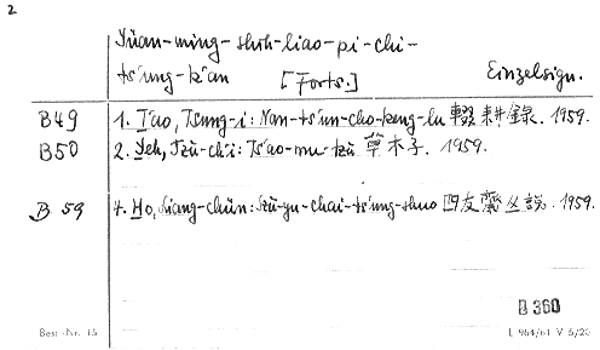 2
Yüan-ming-shih-liao-pi-chi-
ts'ung-k'an [Forts.] Einzelsign.
B49 1. T'ao, Tsung-i: Nan-ts'un-cho-keng-lu 輟耕錄. 1959.
B50 2. Yeh, Tzù-ch'i: Ts'ao-mu-tzù 草木子. 1959.
B 59 4. Ho, Liang-chün: Szù-yu-chai-ts'ung-shuo 四友齋丛說. 1959.
B 360
Best.-Nr. 15 L 964/61 V 5/20